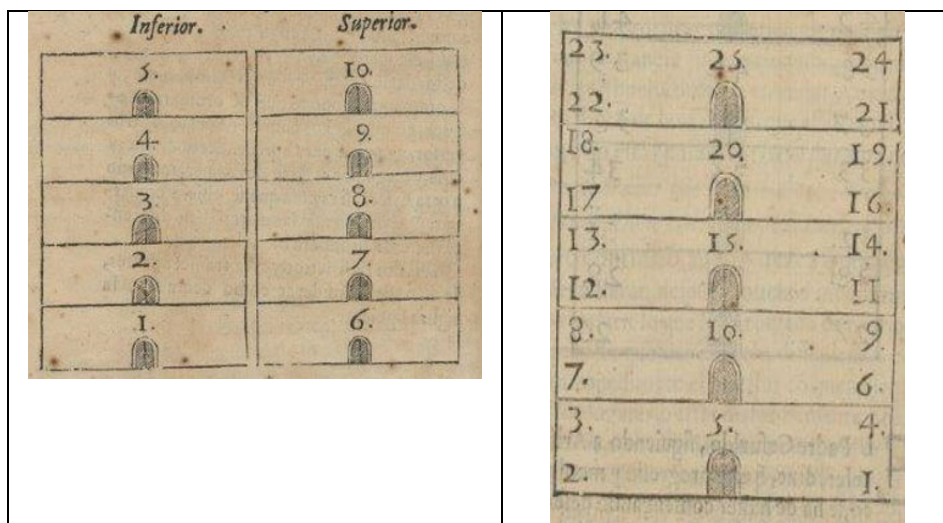 Inferior. Superior.
5. 10.
4. 9.
3. 8.
2. 7.
1. 6.
23. 25. 24
22. 21.
18. 20. 19.
17. 16.
13. 15. 14.
12. 11
8. 10. 9.
7. 6.
3. 5. 4.
2. 1.